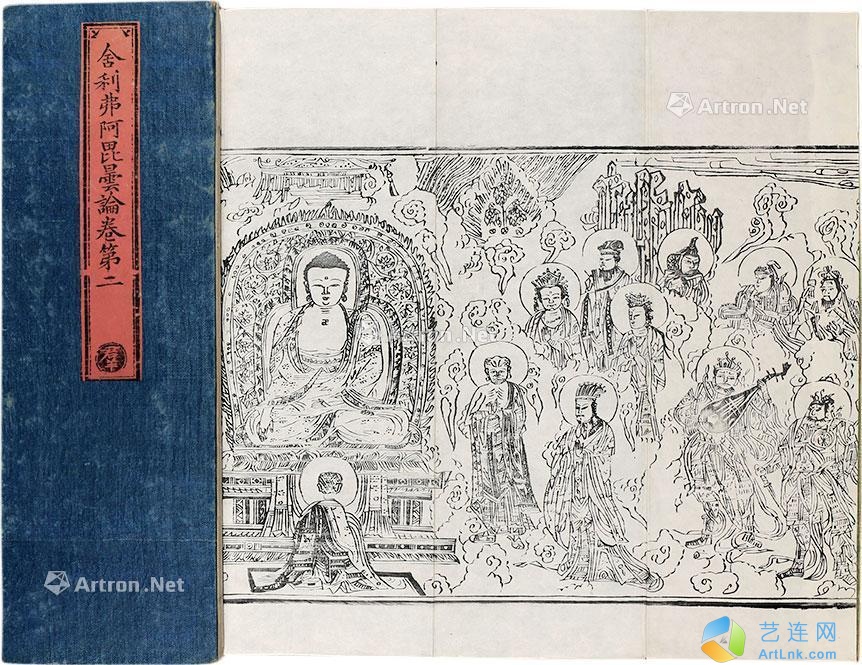 舍利弗阿毘曇論卷第二
Artron.Net
Artron.Net
Artron.Net
艺连网
ArtLnk.com